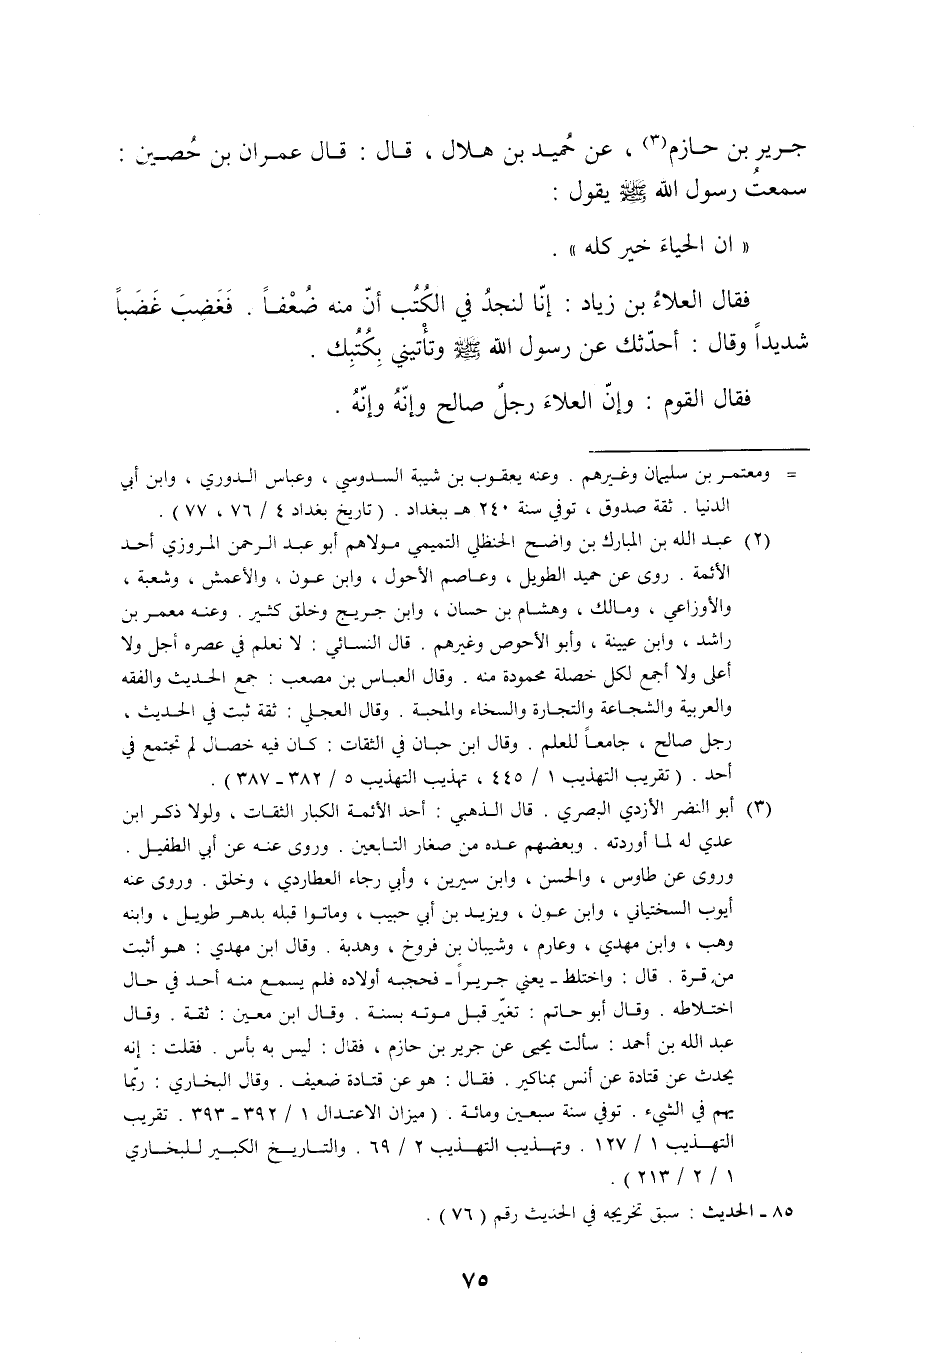 جرير بن حازم(٣) ، عن حُميد بن هلال ، قال : قال عمران بن حُصين :
سمعتُ رسول الله ﷺ يقول :
« ان الحياءَ خير كله » .
فقال العلاءُ بن زياد : إنّا لنجدُ في الكُتُب أنّ منه ضُعْفاً . فَغَضِبَ غَضَباً
شديداً وقال : أحدّثك عن رسول الله ﷺ وتأْتيني بِكُتُبِك .
فقال القوم : وإنّ العلاءَ رجلٌ صالح وإنّهُ وإنّهُ .
= ومعتمر بن سليمان وغيرهم . وعنه يعقوب بن شيبة السدوسي ، وعباس الدوري ، وابن أبي
الدنيا . ثقة صدوق ، توفي سنة ٢٤٠ هـ ببغداد . ( تاريخ بغداد ٤ / ٧٦ ، ٧٧ ) .
(٢) عبد الله بن المبارك بن واضح الحنظلي التميمي مولاهم أبو عبد الرحمن المروزي أحد
الأئمة . روى عن حميد الطويل ، وعاصم الأحول ، وابن عون ، والأعمش ، وشعبة ،
والأوزاعي ، ومالك ، وهشام بن حسان ، وابن جريج وخلق كثير . وعنه معمر بن
راشد ، وابن عيينة ، وأبو الأحوص وغيرهم . قال النسائي : لا نعلم في عصره أجل ولا
أعلى ولا أجمع لكل خصلة محمودة منه . وقال العباس بن مصعب : جمع الحديث والفقه
والعربية والشجاعة والتجارة والسخاء والمحبة . وقال العجلي : ثقة ثبت في الحديث ،
رجل صالح ، جامعاً للعلم . وقال ابن حبان في الثقات : كان فيه خصال لم تجتمع في
أحد . ( تقريب التهذيب ١ / ٤٤٥ ، تهذيب التهذيب ٥ / ٣٨٢ - ٣٨٧ ) .
(٣) أبو النضر الأزدي البصري . قال الذهبي : أحد الأئمة الكبار الثقات ، ولولا ذكر ابن
عدي له لما أوردته . وبعضهم عده من صغار التابعين . وروى عنه عن أبي الطفيل .
وروى عن طاوس ، والحسن ، وابن سيرين ، وأبي رجاء العطاردي ، وخلق . وروى عنه
أيوب السختياني ، وابن عون ، ويزيد بن أبي حبيب ، وماتوا قبله بدهر طويل ، وابنه
وهب ، وابن مهدي ، وعارم ، وشيبان بن فروخ ، وهدبة . وقال ابن مهدي : هو أثبت
من قرة . قال : واختلط - يعني جريراً - فحجبه أولاده فلم يسمع منه أحد في حال
اختلاطه . وقال أبو حاتم : تغيّر قبل موته بسنة . وقال ابن معين : ثقة . وقال
عبد الله بن أحمد : سألت يحيى عن جرير بن حازم ، فقال : ليس به بأس . فقلت : إنه
يحدث عن قتادة عن أنس بمناكير . فقال : هو عن قتادة ضعيف . وقال البخاري : ربّما
يهم في الشيء . توفي سنة سبعين ومائة . ( ميزان الاعتدال ١ / ٣٩٢ - ٣٩٣ . تقريب
التهذيب ١ / ١٢٧ . وتهذيب التهذيب ٢ / ٦٩ . والتاريخ الكبير للبخاري
١ / ٢ / ٢١٣ ) .
٨٥ - الحديث : سبق تخريجه في الحديث رقم ( ٧٦ ) .
٧٥